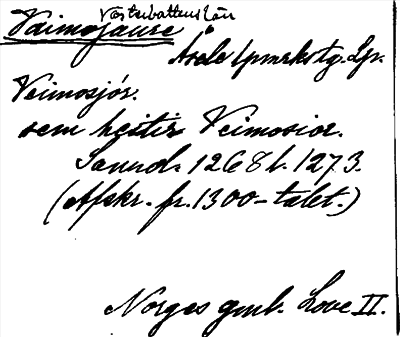 Västerbottens län
Vaimojaure
Åsele lpmrkstg. Lp.
Veimosjór.
sem heitir Veimosior.
Samnd. 1268 l. 1273.
(Afskr. fr. 1300-talet.)
Norges gml. Love II.